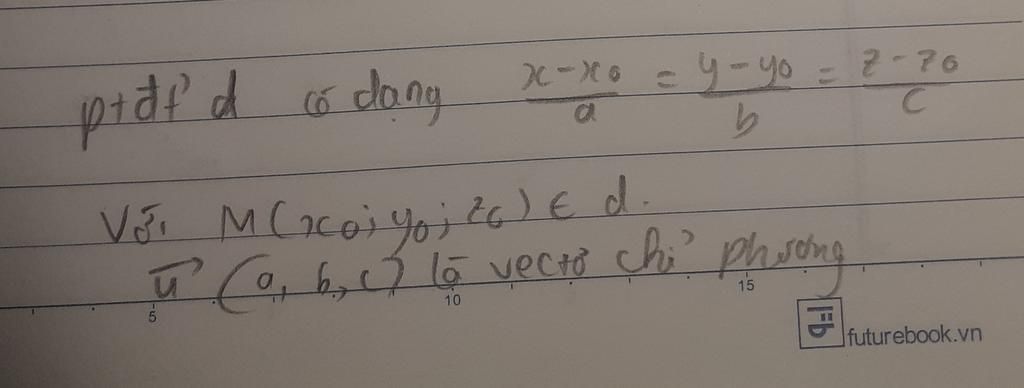 ptđt' d có dạng x-x₀/a = y-y₀/b = z-z₀/c
Với M(x₀; y₀; z₀) ∈ d.
u⃗ (a, b, c) là vectơ chỉ phương
5 10 15
futurebook.vn